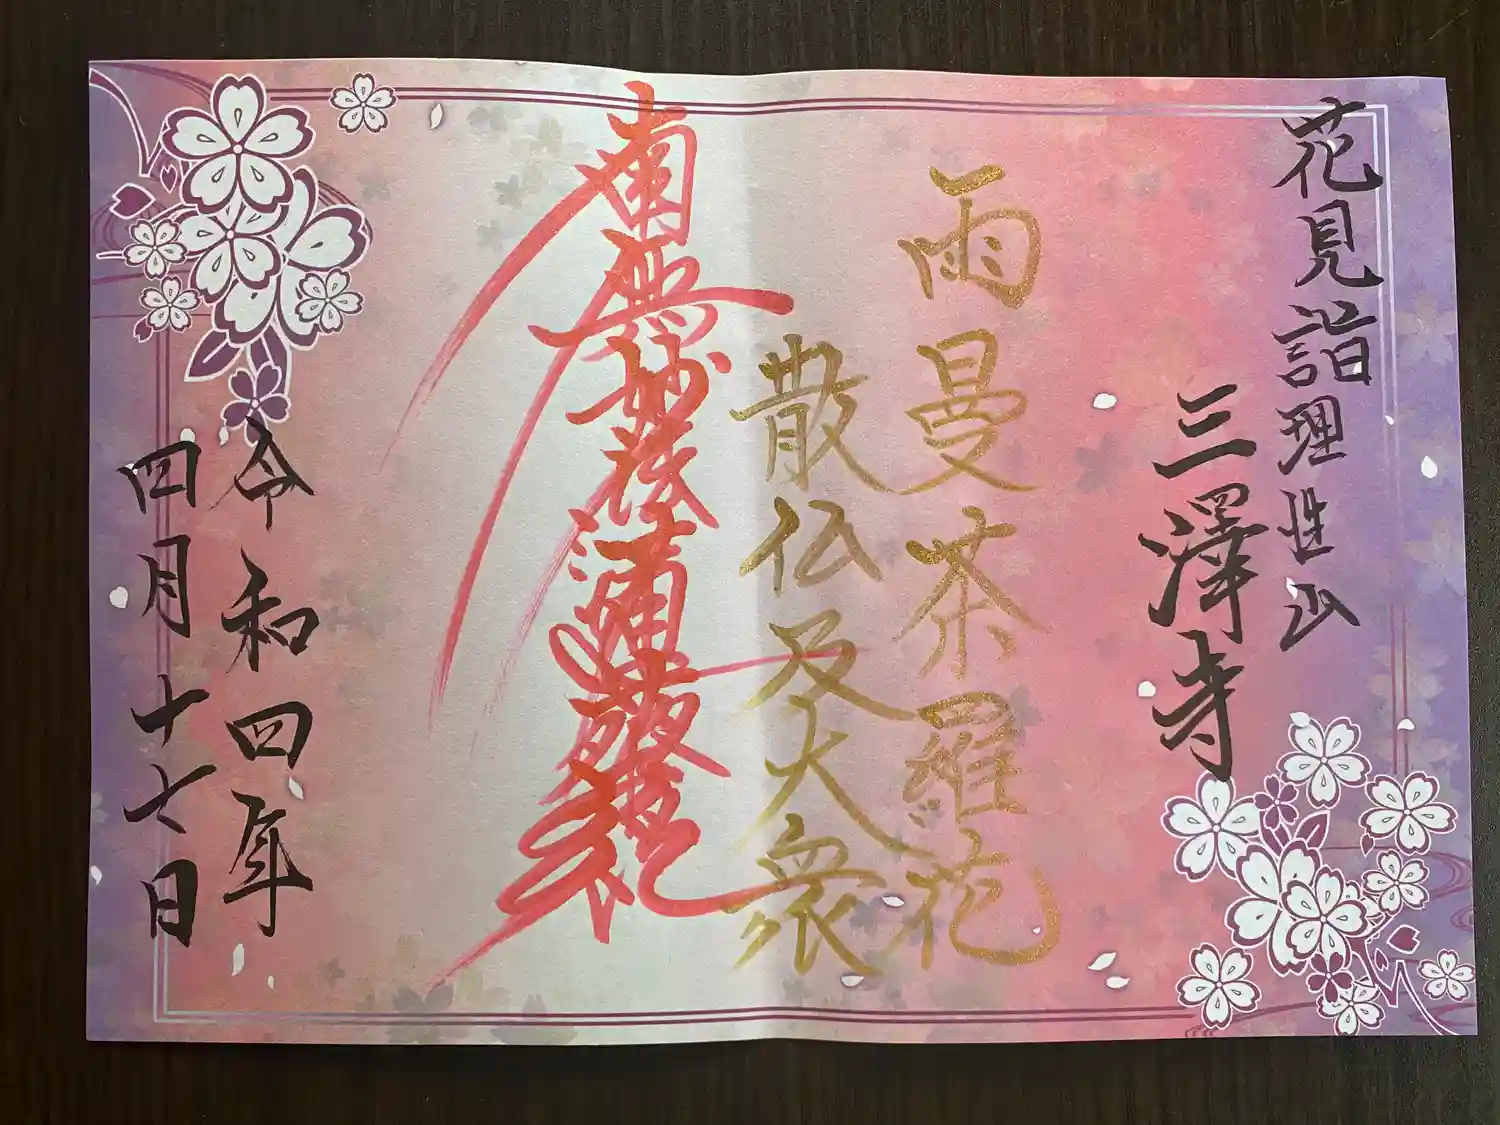 花見詣 理性山
三澤寺
雨曼荼羅花
散仏及大衆
南無妙法蓮華経
令和四年
四月十七日